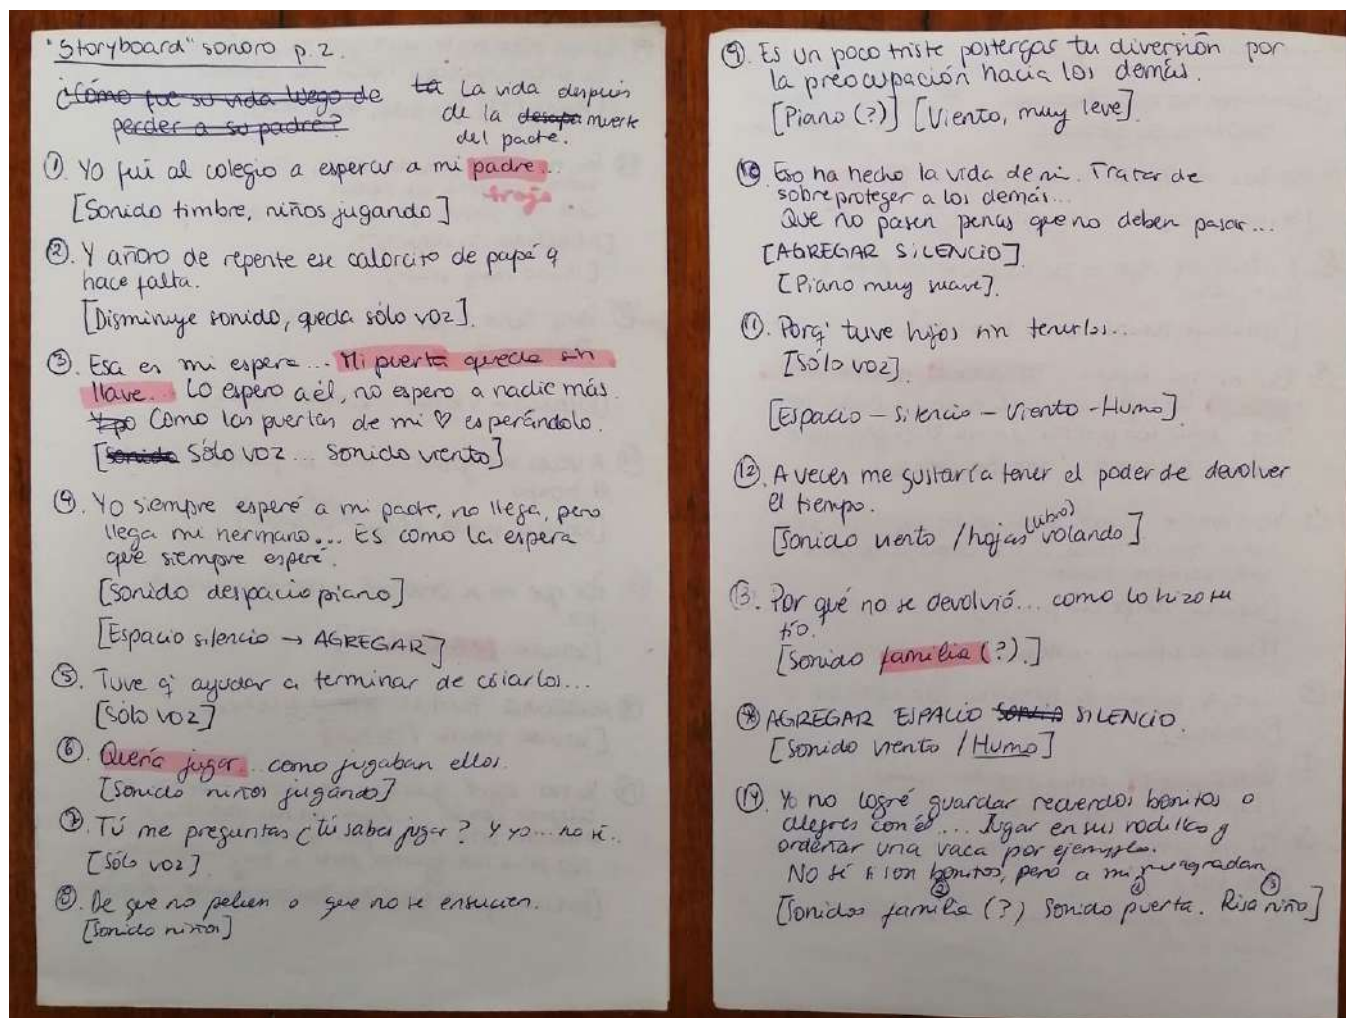 "Storyboard" sonoro p.2.
¿Cómo fue su vida luego de
perder a su padre?
La La vida después
de la desapa muerte
del padre.
① Yo fuí al colegio a esperar a mi padre...
[Sonido timbre, niños jugando]
②. Y añoro de repente ese calorcito de papá q
hace falta.
[Disminuye sonido, queda sólo voz].
③. Esa es mi espera... Mi puerta queda sin
llave... Lo espero a él, no espero a nadie más.
Como las puertas de mi ♡ esperándolo.
[Sonido Sólo voz... Sonido viento]
④. Yo siempre esperé a mi padre, no llega, pero
llega mi hermano... Es como la espera
que siempre esperé.
[Sonido despacio piano]
[Espacio silencio → AGREGAR]
⑤. Tuve q' ayudar a terminar de criarlos...
[Sólo voz]
⑥. Quería jugar... como jugaban ellos.
[Sonido niños jugando]
⑦. Tú me preguntas ¿tú sabes jugar? Y yo... no sé..
[Sólo voz].
⑧. De que no peleen o que no se ensucien.
[Sonido niños]
⑨. Es un poco triste postergar tu diversión por
la preocupación hacia los demás.
[Piano (?)] [Viento, muy leve].
⑩. Eso ha hecho la vida de mi. Tratar de
sobreproteger a los demás...
Que no pasen penas que no deben pasar...
[AGREGAR SILENCIO].
[Piano muy suave].
⑪. Porq' tuve hijos sin tenerlos...
[Sólo voz].
[Espacio - Silencio - Viento - Humo].
⑫. A veces me gustaría tener el poder de devolver
el tiempo.
[Sonido viento / hojas (libro) volando]
⑬. Por qué no se devolvió... como lo hizo su
tío.
[Sonido familia (?).]
AGREGAR ESPACIO SILENCIO.
[Sonido viento / Humo]
⑭. Yo no logré guardar recuerdos bonitos o
alegres con él.... Jugar en sus rodillas y
ordeñar una vaca por ejemplo.
No sé si son bonitos, pero a mi me agradan
② ① ③
[Sonidos familia (?) Sonido puerta. Risa niño]